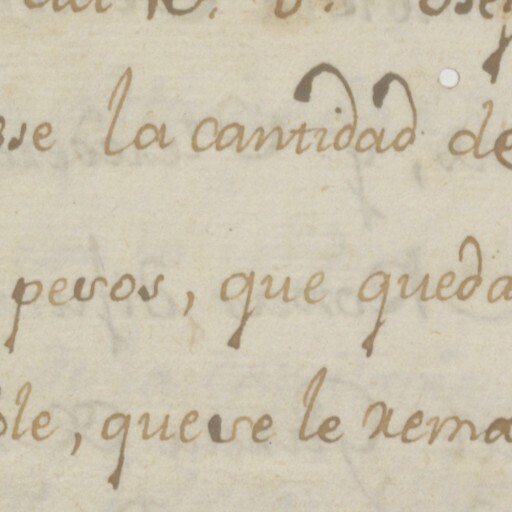 se la cantidad de
pesos, que queda
ble, quese le rema